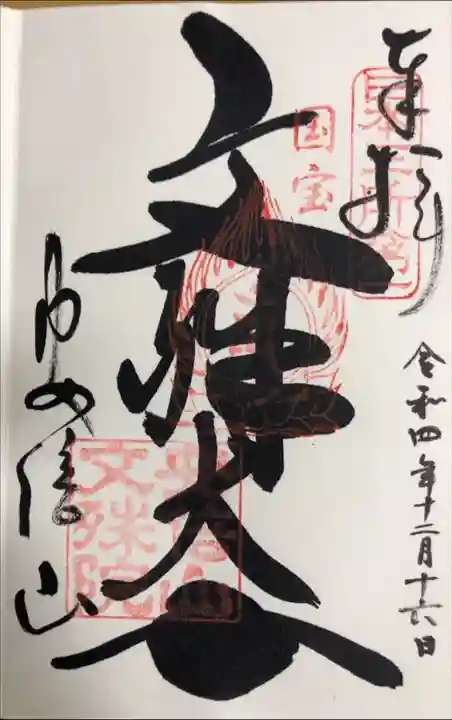 奉拝
国宝
令和四年十二月十六日
文殊大
安倍山
安倍山
文殊院